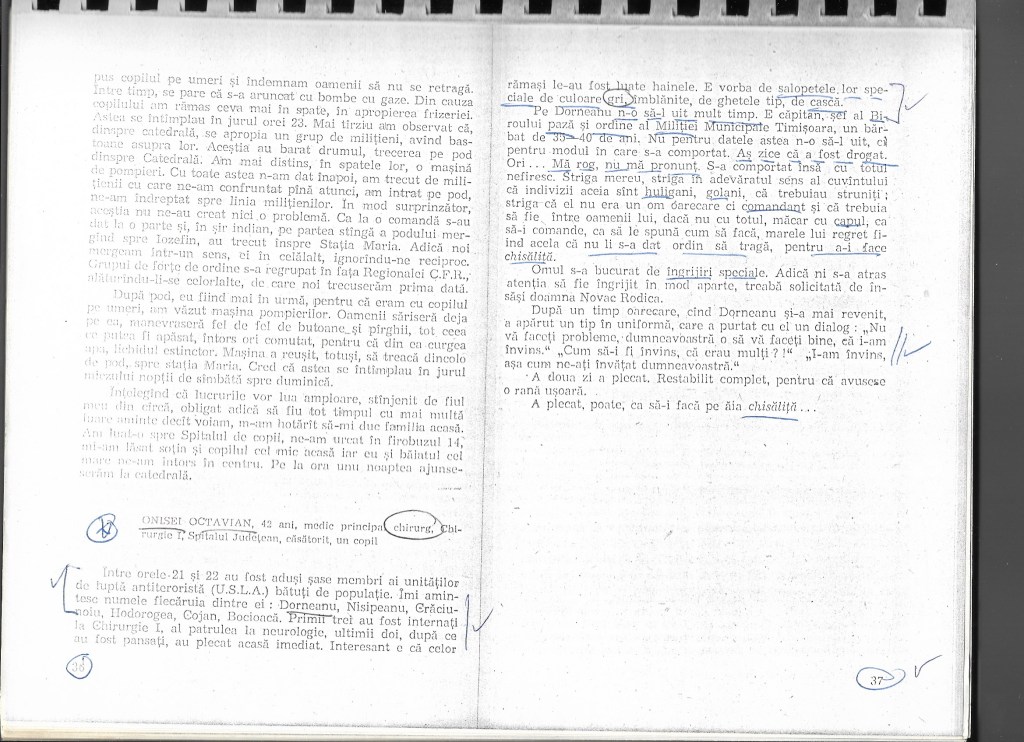 pus copilul pe umeri și îndemnam oamenii să nu se retragă.
Între timp, se pare că s-a aruncat cu bombe cu gaze. Din cauza
copilului am rămas ceva mai în spate, în apropierea frizeriei.
Astea se întîmplau în jurul orei 23. Mai tîrziu am observat că,
dinspre catedrală, se apropia un grup de milițieni, avînd bas-
toane asupra lor. Aceștia au barat drumul, trecerea pe pod
dinspre Catedrală. Am mai distins, în spatele lor, o mașină
de pompieri. Cu toate astea n-am dat înapoi, am trecut de mili-
țienii cu care ne-am confruntat pînă atunci, am intrat pe pod,
ne-am îndreptat spre linia milițienilor. În mod surprinzător,
aceștia nu ne-au creat nici o problemă. Ca la o comandă s-au
dat la o parte și, în șir indian, pe partea stîngă a podului mer-
gînd spre Iozefin, au trecut înspre Stația Maria. Adică noi
mergeam într-un sens, ei în celălalt, ignorîndu-ne reciproc.
Grupul de forțe de ordine s-a regrupat în fața Regionalei C.F.R.,
alăturîndu-li-se celorlalte, de care noi trecuserăm prima dată.
După pod, eu fiind mai în urmă, pentru că eram cu copilul
pe umeri, am văzut mașina pompierilor. Oamenii săriseră deja
pe ea, manevraseră fel de fel de butoane și pîrghii, tot ceea
ce putea fi apăsat, întors ori comutat, pentru că din ea curgea
apa, lichidul extinctor. Mașina a reușit, totuși, să treacă dincolo
de pod, spre stația Maria. Cred că astea se întîmplau în jurul
miezului nopții de sîmbătă spre duminică.
Înțelegînd că lucrurile vor lua amploare, stînjenit de fiul
meu din cîrcă, obligat adică să fiu tot timpul cu mai multă
luare aminte decît voiam, m-am hotărît să-mi duc familia acasă.
Am luat-o spre Spitalul de copii, ne-am urcat în firobuzul 14,
mi-am lăsat soția și copilul cel mic acasă iar eu și băiatul cel
mare ne-am întors în centru. Pe la ora unu noaptea ajunse-
serăm la catedrală.
ONISEI OCTAVIAN, 42 ani, medic principal chirurg, Chi-
rurgie I, Spitalul Județean, căsătorit, un copil
Între orele 21 și 22 au fost aduși șase membri ai unităților
de luptă antiteroristă (U.S.L.A.) bătuți de populație. Îmi amin-
tesc numele fiecăruia dintre ei : Dorneanu, Nisipeanu, Grăciu-
noiu, Hodorogea, Cojan, Bocioacă. Primii trei au fost internați
la Chirurgie I, al patrulea la neurologie, ultimii doi, după ce
au fost pansați, au plecat acasă imediat. Interesant e că celor
36
rămași le-au fost luate hainele. E vorba de salopetele lor spe-
ciale de culoare gri, îmblănite, de ghetele tip, de cască.
Pe Dorneanu n-o să-l uit mult timp. E căpitan, șef al Bi-
roului pază și ordine al Miliției Municipale Timișoara, un băr-
bat de 35—40 de ani. Nu pentru datele astea n-o să-l uit, ci
pentru modul în care s-a comportat. Aș zice că a fost drogat.
Ori... Mă rog, nu mă pronunț. S-a comportat însă cu totul
nefiresc. Striga mereu, striga în adevăratul sens al cuvîntului
că indivizii aceia sînt huligani, golani, că trebuiau struniți ;
striga că el nu era un om oarecare ci comandant și că trebuia
să fie între oamenii lui, dacă nu cu totul, măcar cu capul, ca
să-i comande, ca să le spună cum să facă, marele lui regret fi-
ind acela că nu li s-a dat ordin să tragă, pentru a-i face
chisăliță.
Omul s-a bucurat de îngrijiri speciale. Adică ni s-a atras
atenția să fie îngrijit în mod aparte, treabă solicitată de în-
săși doamna Novac Rodica.
După un timp oarecare, cînd Dorneanu și-a mai revenit,
a apărut un tip în uniformă, care a purtat cu el un dialog : „Nu
vă faceți probleme, dumneavoastră o să vă faceți bine, că i-am
învins.“ „Cum să-i fi învins, că erau mulți ?!“ „I-am învins,
așa cum ne-ați învățat dumneavoastră.“
A doua zi a plecat. Restabilit complet, pentru că avusese
o rană ușoară.
A plecat, poate, ca să-i facă pe ăia chisăliță...
37